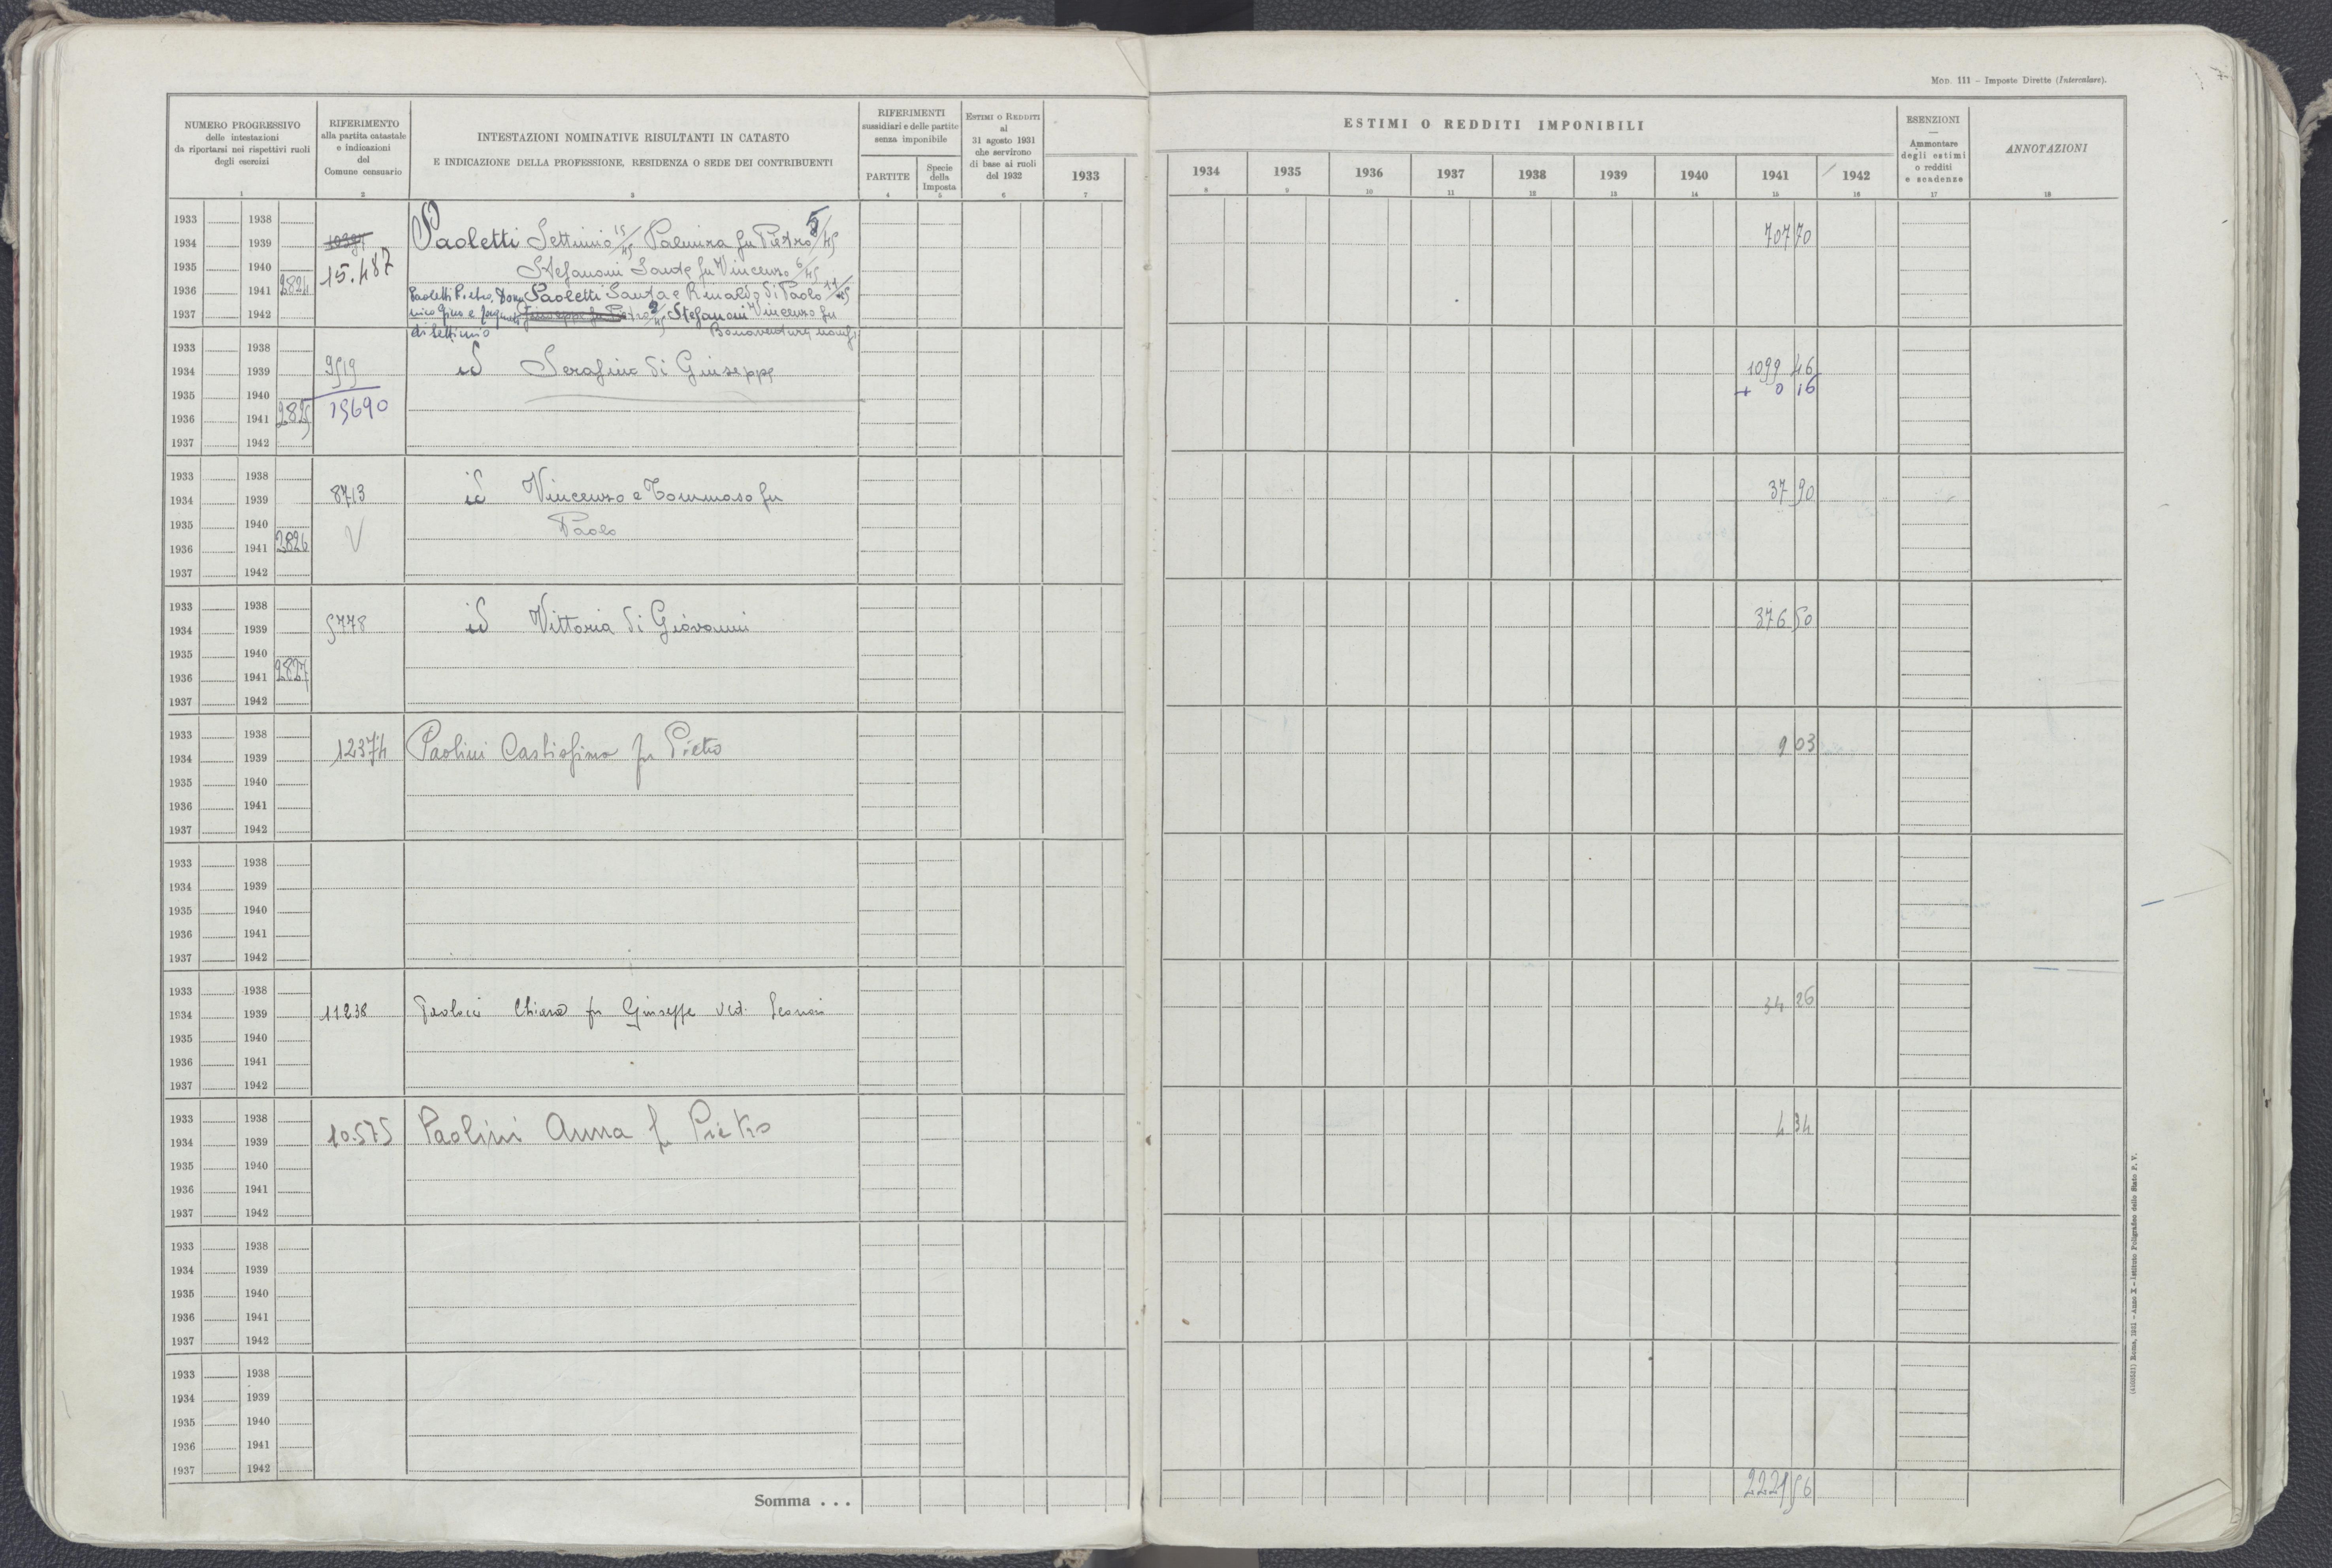 MOD. 111 – Imposte Dirette (Intercalare).
NUMERO PROGRESSIVO
delle intestazioni
da riportarsi nei rispettivi ruoli
degli esercizi
1
RIFERIMENTO
alla partita catastale
e indicazioni
del
Comune censuario
2
INTESTAZIONI NOMINATIVE RISULTANTI IN CATASTO
E INDICAZIONE DELLA PROFESSIONE, RESIDENZA O SEDE DEI CONTRIBUENTI
3
RIFERIMENTI
sussidiari e delle partite
senza imponibile
PARTITE
4
Specie
della
Imposta
5
ESTIMI O REDDITI
al
31 agosto 1931
che servirono
di base ai ruoli
del 1932
6
ESTIMI O REDDITI IMPONIBILI
1933
7
1934
8
1935
9
1936
10
1937
11
1938
12
1939
13
1940
14
1941
15
1942
16
ESENZIONI
—
Ammontare
degli estimi
o redditi
e scadenze
17
ANNOTAZIONI
18
1933 1938
1934 1939 Paoletti Settimio 15/45 Palmira fu Pietro 5/45 707 70
1935 1940 15.487 Stefanoni Sante fu Vincenzo 6/45
1936 1941 2824 Paoletti Pietro, Dome Paoletti Santa e Rinaldo di Paolo
1937 1942 nico Gino e Stefanoni Vincenzo fu
di Settimio Bonaventura
1933 1938
1934 1939 9519 id Serafino di Giuseppe 1099 46
1935 1940 15690 + 0 16
1936 1941 2825
1937 1942
1933 1938
1934 1939 8713 id Vincenzo e Tommaso fu 37 90
1935 1940 V Paolo
1936 1941 2826
1937 1942
1933 1938
1934 1939 5778 id Vittoria di Giovanni 376 50
1935 1940
1936 1941 2827
1937 1942
1933 1938
1934 1939 12374 Paolini fu Pietro 9 03
1935 1940
1936 1941
1937 1942
1933 1938
1934 1939
1935 1940
1936 1941
1937 1942
1933 1938
1934 1939 11238 Chiara fu Giuseppe ved. 34 26
1935 1940
1936 1941
1937 1942
1933 1938
1934 1939 10.575 Paolini Anna fu Pietro 4 34
1935 1940
1936 1941
1937 1942
1933 1938
1934 1939
1935 1940
1936 1941
1937 1942
1933 1938
1934 1939
1935 1940
1936 1941
1937 1942
Somma . . .
(4103521) Roma, 1931 – Anno X – Istituto Poligrafico dello Stato P. V.